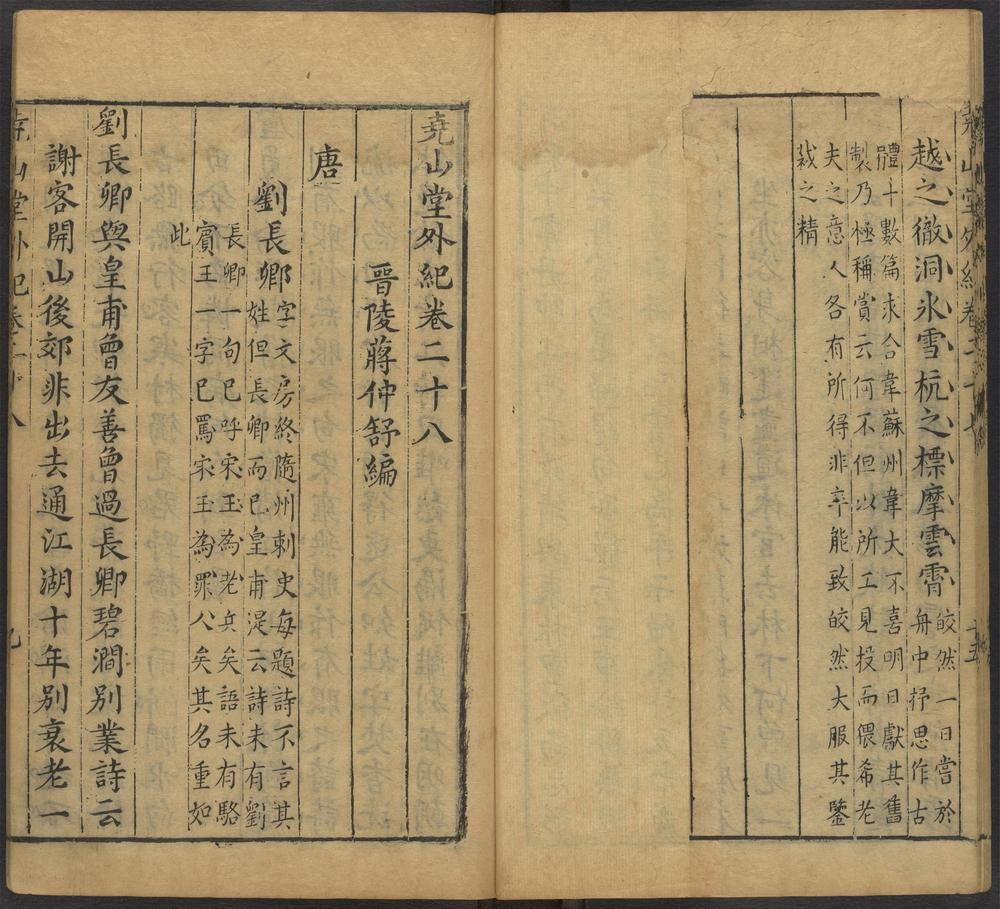 越之徹洞氷雪杭之標摩雲霄皎然一日嘗於
舟中抒思作古
體十數篇求合韋蘇州韋大不喜明日獻其舊
製乃極稱賞云何不但以所工見投而猥希老
夫之意人各有所得非卒能致皎然大服其鑒
裁之精
堯山堂外紀卷二十八
晉陵蔣仲舒編
唐
劉長卿字文房終隨州刺史每題詩不言其
姓但長卿而已皇甫湜云詩未有劉
長卿一句已呼宋玉為老兵矣語未有駱
賓王一字已罵宋玉為罪人矣其名重如
此
劉長卿與皇甫曾友善曾過長卿碧澗別業詩云
謝客開山後郊非出去通江湖十年別衰老一
堯山堂外紀卷二十八